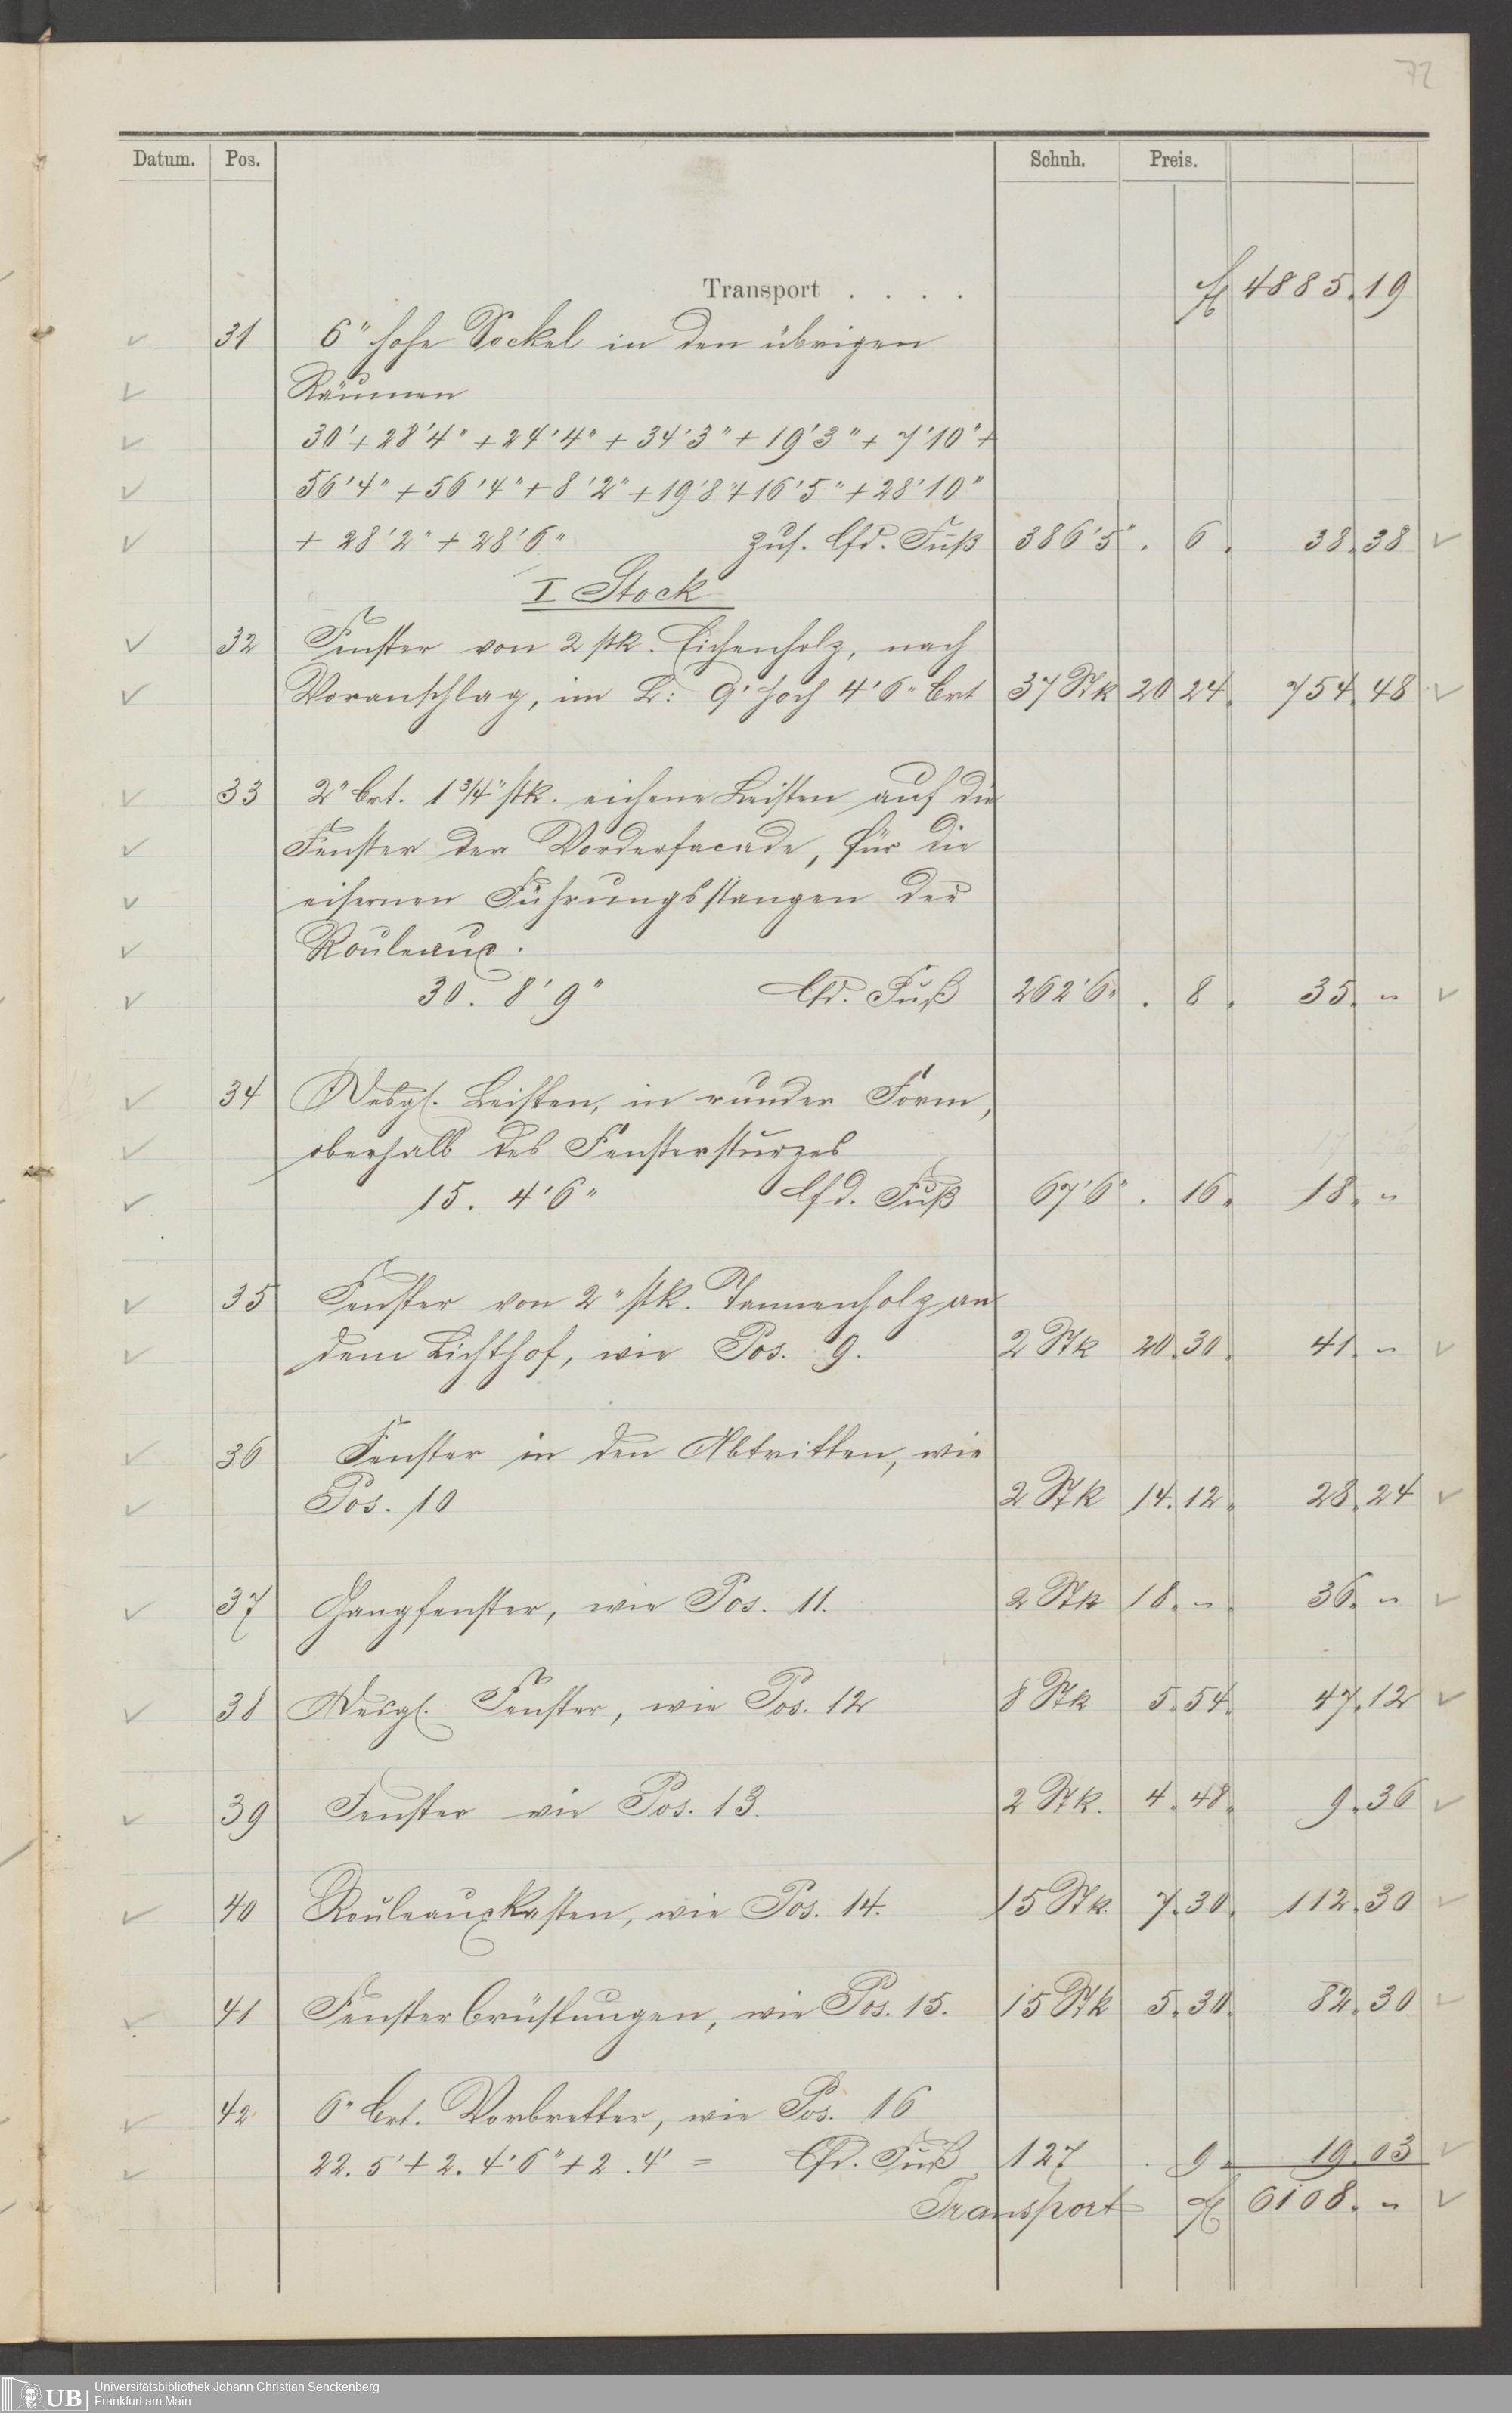 72
Datum. Pos. Schuh. Preis.
Transport . . . . fl 4885. 19
31 6" hohe Sockel in den übrigen
Räumen
30' + 28'4" + 24'4" + 34'3" + 19'3" + 7'10" +
56'4" + 56'4" + 8'2" + 19'8" + 16'5" + 28'10"
+ 28'2" + 28'6" zus. lfd. Fuß 386'5" . 6. 38. 38
I Stock
32 Fenster von 2 stk. Eichenholz, nach
Voranschlag, im L: 9' hoch 4'6" brt 37 Stk 20 24. 754. 48
33 2" brt. 1 3/4" stk. eichene Leisten auf die
Fenster der Vorderfacade, für die
eisernen Führungsstangen der
Rouleaux.
30. 8'9" lfd. Fuß 262'6" . 8. 35. "
34 Desgl. Leisten, in runder Form,
oberhalb des Fenstersturzes
15. 4'6" lfd. Fuß 67'6" . 16. 18. "
35 Fenster von 2" stk. Tannenholz an
dem Lichthof, wie Pos. 9. 2 Stk 20. 30. 41. "
36 Fenster in den Abtritten, wie
Pos. 10 2 Stk 14. 12. 28. 24
37 Gangfenster, wie Pos. 11. 2 Stk 18. " 36. "
38 Desgl. Fenster, wie Pos. 12 8 Stk 5. 54. 47. 12
39 Fenster wie Pos. 13. 2 Stk. 4. 48. 9. 36
40 Rouleauxkasten, wie Pos. 14. 15 Stk. 7. 30. 112. 30
41 Fensterbrüstungen, wie Pos. 15. 15 Stk 5. 30. 82. 30
42 6" brt. Vorbretter, wie Pos. 16
22. 5' + 2. 4'6" + 2. 4' = lfd. Fuß 127 . 9. 19. 03
Transport fl 6108. "
UB Universitätsbibliothek Johann Christian Senckenberg
Frankfurt am Main